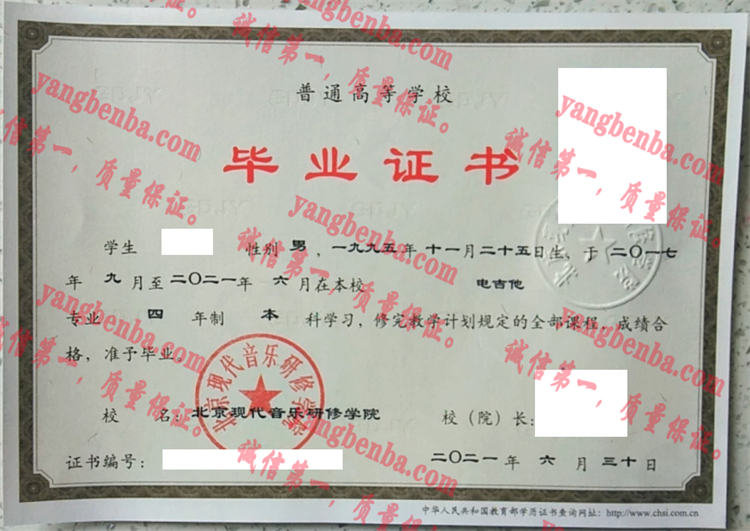 普通高等学校
毕业证书
学生 性别 男，一九九五年 十一月二十五日生，于二〇一七
年 九 月至二〇二一年 六 月在本校 电吉他
专业 四 年制 本 科学习，修完教学计划规定的全部课程，成绩合
格，准予毕业。
北京现代音乐研修学院
校 名：北京现代音乐研修学院 校（院）长：
证书编号： 二〇二一年 六 月 三十日
中华人民共和国教育部学历证书查询网址：http://www.chsi.com.cn
yangbenba.com
诚信第一，质量保证。
yangbenba.com
诚信第一，质量保证。
yangbenba.com
诚信第一，质量保证。
yangbenba.com
诚信第一，质量保证。
yangbenba.com
诚信第一，质量保证。
yangbenba.com
诚信第一，质量保证。
yangbenba.com
诚信第一，质量保证。